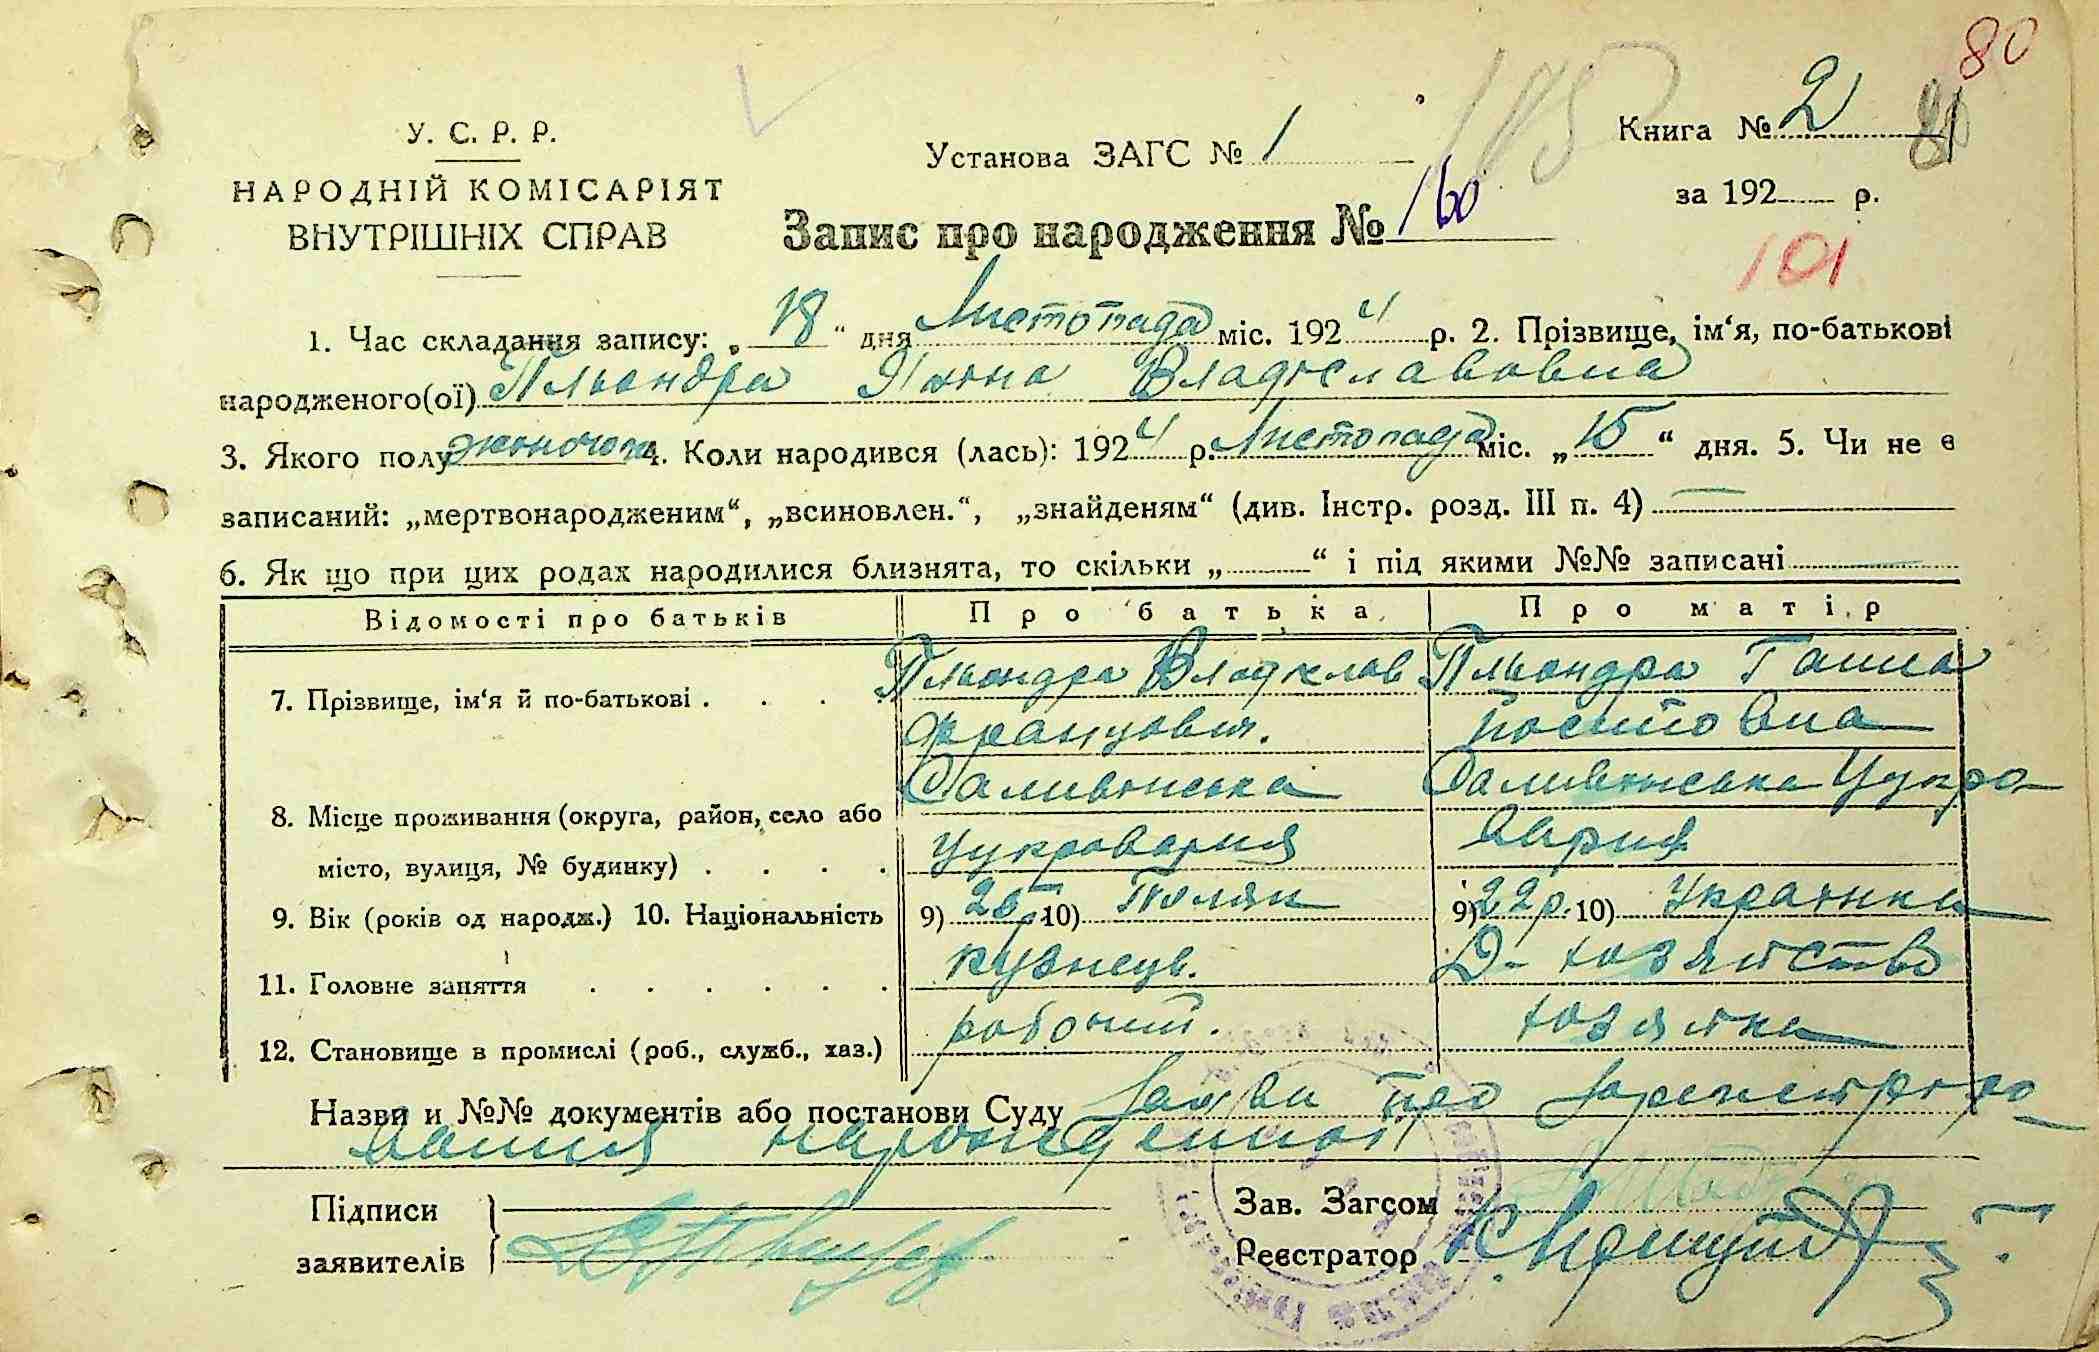 80
У. С. Р. Р.
Установа ЗАГС № 1
Книга № 2
81
НАРОДНІЙ КОМІСАРІЯТ
за 192 р.
ВНУТРІШНІХ СПРАВ
Запис про народження № 160
101
1. Час складання запису: „18“ дня Листопада міс. 1924 р. 2. Прізвище, ім‘я, по-батькові
народженого(ої) Пльондра Яніна Владіславовна
3. Якого полу жіночого 4. Коли народився (лась): 1924 р. Листопада міс. „15“ дня. 5. Чи не є
записаний: „мертвонародженим“, „всиновлен.“, „знайденям“ (див. Інстр. розд. III п. 4) —
6. Як що при цих родах народилися близнята, то скільки „ “ і під якими №№ записані
Відомості про батьків Про батька Про матір
7. Прізвище, ім‘я й по-батькові . . . . Пльондра Владіслав Пльондра Ганна
Францович. Йосиповна
Саливонська Саливонська Цукро
8. Місце проживання (округа, район, село або
цукроварня варня
місто, вулиця, № будинку) . . . .
9. Вік (років од народж.) 10. Національність 9) 26 р. 10) Поляк 9) 22 р. 10) Українка
11. Головне заняття . . . . . . Кузнець. Д- хозяйство
12. Становище в промислі (роб., служб., хаз.) робочий. хозяйка
Назви и №№ документів або постанови Суду Заява про зарегистриро
вання народженної
Підписи
Зав. Загсом
заявителів
Реєстратор